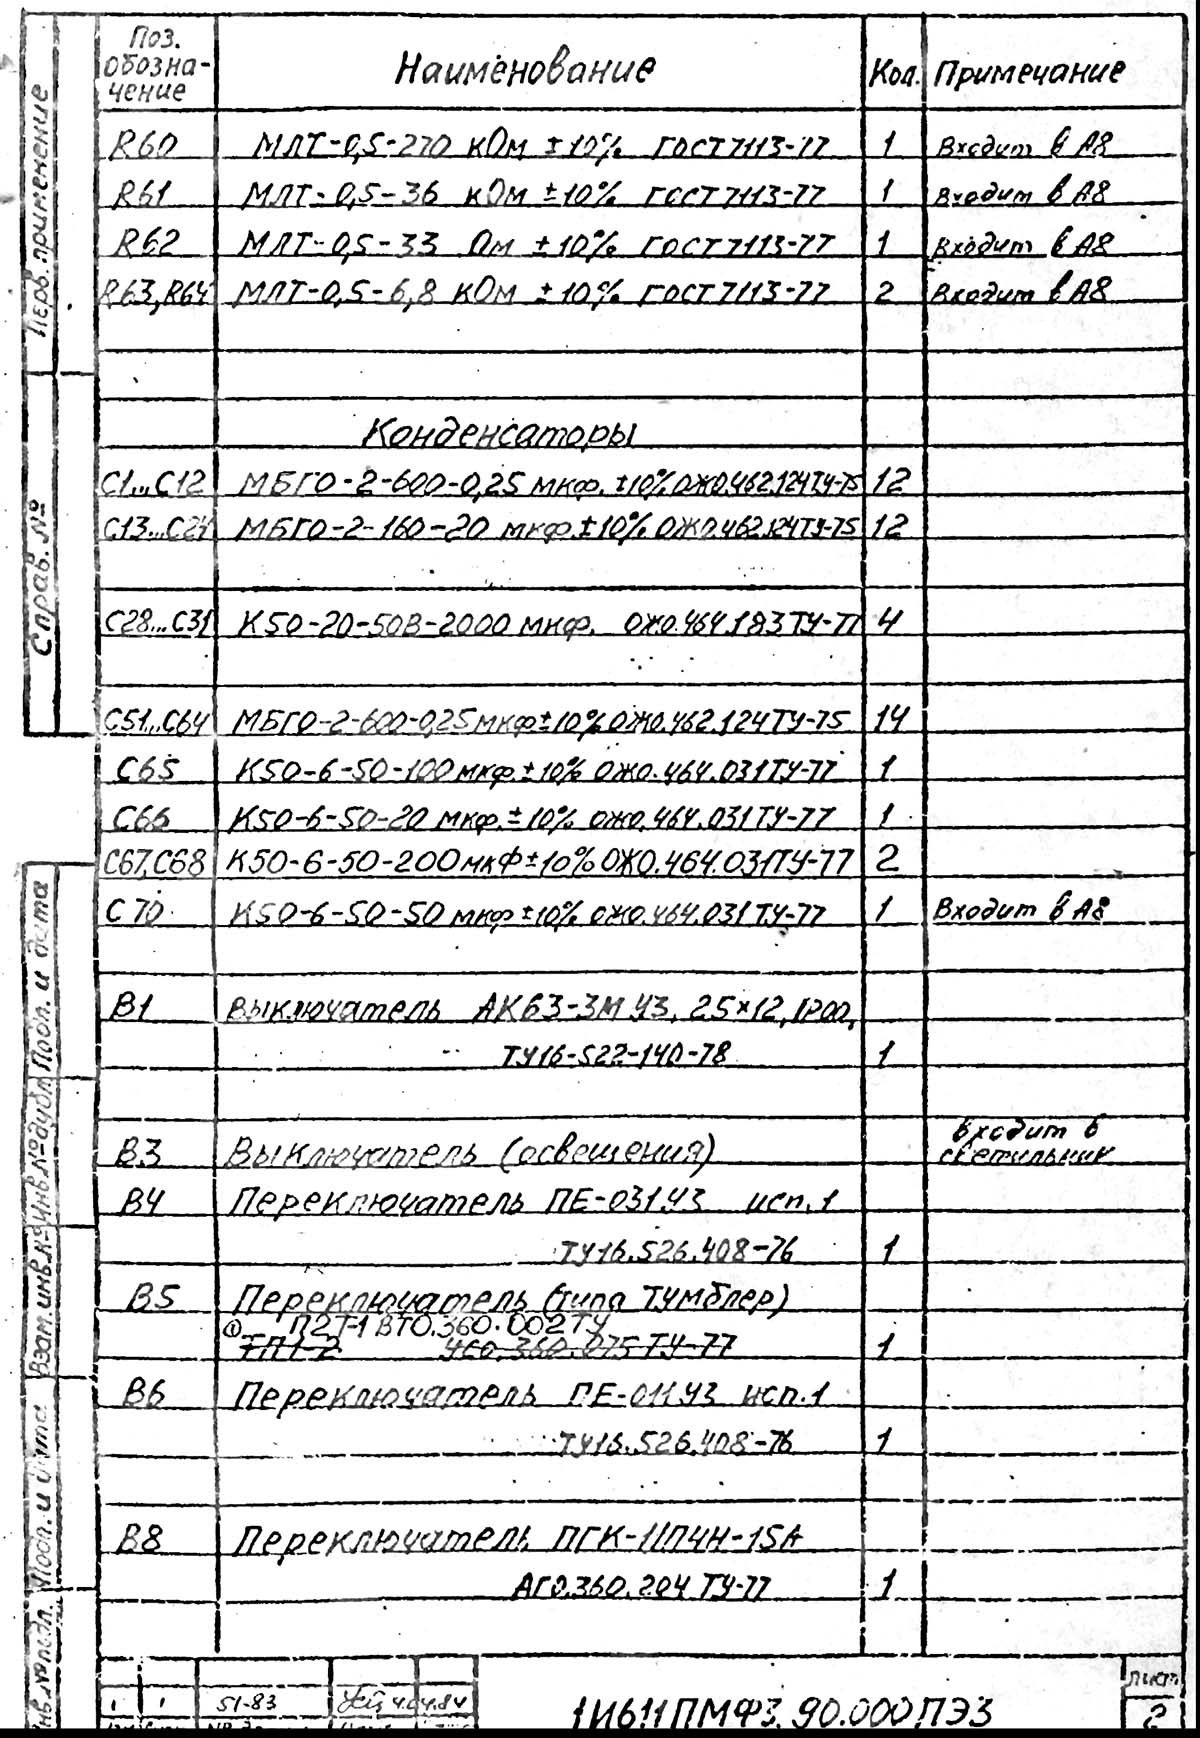 Поз. обозна- чение Наименование Кол. Примечание
R60 МЛТ-0,5-270 кОм ±10% ГОСТ 7113-77 1 Входит в А8
R61 МЛТ-0,5-36 кОм ±10% ГОСТ 7113-77 1 Входит в А8
R62 МЛТ-0,5-33 Ом ±10% ГОСТ 7113-77 1 Входит в А8
R63,R64 МЛТ-0,5-6,8 кОм ±10% ГОСТ 7113-77 2 Входит в А8
Конденсаторы
С1...С12 МБГО-2-600-0,25 мкф. ±10% ОЖ0.462.124ТУ-75 12
С13...С24 МБГО-2-160-20 мкф. ±10% ОЖ0.462.124ТУ-75 12
С28...С31 К50-20-50В-2000 мкф. ОЖ0.464.183ТУ-77 4
С51...С64 МБГО-2-600-0,25 мкф ±10% ОЖ0.462.124ТУ-75 14
С65 К50-6-50-100 мкф. ±10% ОЖ0.464.031ТУ-77 1
С66 К50-6-50-20 мкф. ±10% ОЖ0.464.031ТУ-77 1
С67,С68 К50-6-50-200 мкФ ±10% ОЖО.464.031ТУ-77 2
С70 К50-6-50-50 мкф ±10% ОЖ0.464.031ТУ-77 1 Входит в А8
В1 Выключатель АК63-3М У3, 2.5×12,Iроо,
ТУ16-522-140-78 1
Входит в
В3 Выключатель (освещения) светильник
В4 Переключатель ПЕ-031У3 исп.1
ТУ16.526.408-76 1
В5 Переключатель (типа Тумблер)
① П2Т-1 ВТО.360.002ТУ
ТП1-2 УС0.360.075ТУ-77 1
В6 Переключатель ПЕ-011У3 исп.1
ТУ16.526.408-76 1
В8 Переключатель ПГК-11П4Н-15А
АГ0.360.204 ТУ-77 1
1 1 51-83 4.04.84
1И611ПМФ3.90.000ПЭ3
Лист
2
Перв. применение
Справ. №
Подп. и дата
Инв.№дубл
Взам.инв.№
Подп. и дата
Инв.№подл.